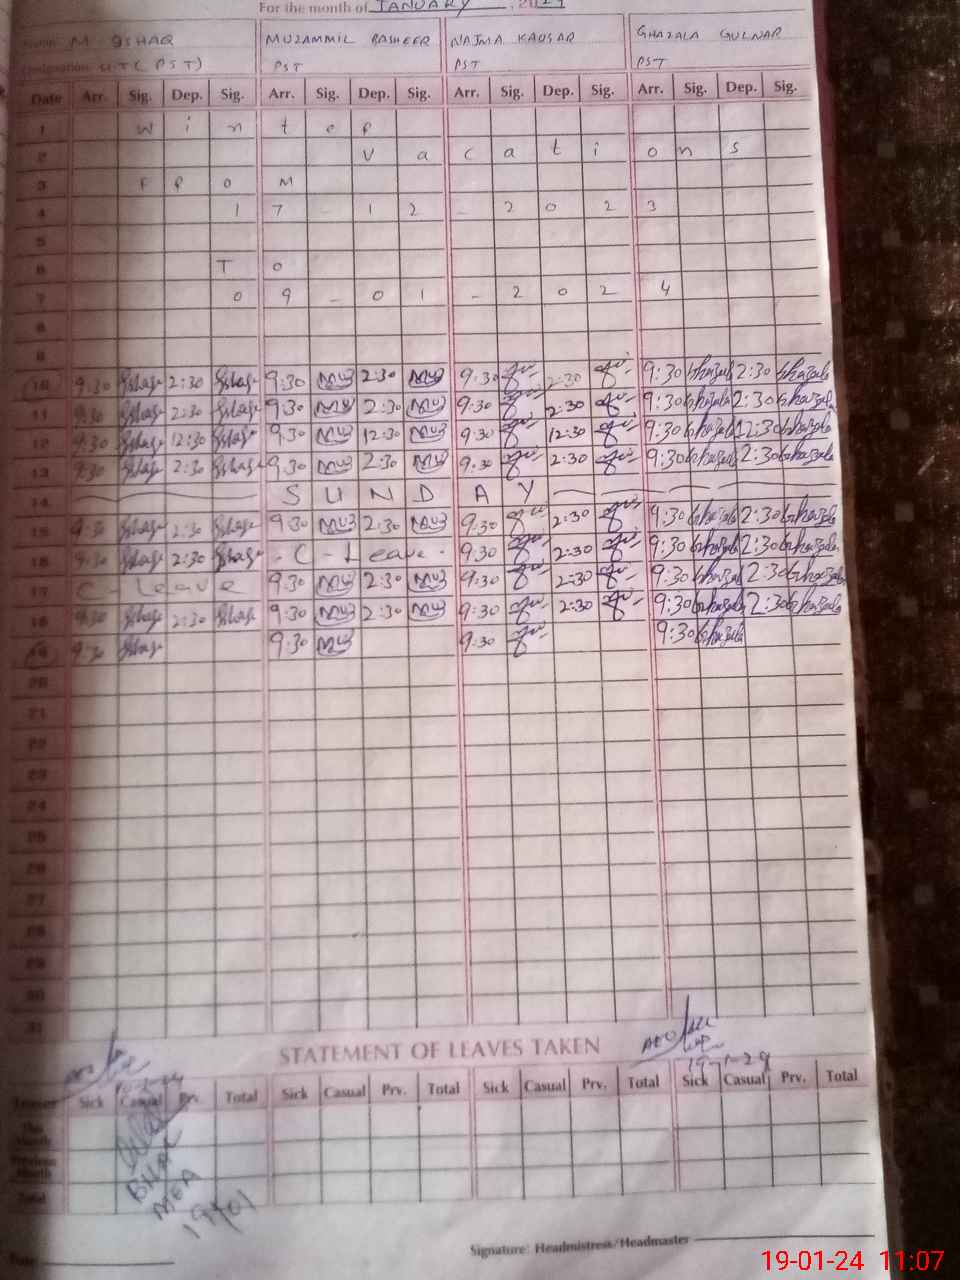 For the month of JANUARY, 2024
Name: M. ISHAQ MUZAMMIL BASHEER NAJMA KAUSAR GHAZALA GULNAR
Designation: (PST) PST PST PST
Date Arr. Sig. Dep. Sig. Arr. Sig. Dep. Sig. Arr. Sig. Dep. Sig. Arr. Sig. Dep. Sig.
1 Winter
2 Vacations
3 From
4 17-12-2023
5
6 To
7 09-01-2024
8
9
10 9:30 Ishaq 2:30 Ishaq 9:30 2:30 9:30 2:30 9:30 Ghazala 2:30 Ghazala
11 9:30 Ishaq 2:30 Ishaq 9:30 2:30 9:30 2:30 9:30 Ghazala 2:30 Ghazala
12 9:30 Ishaq 12:30 Ishaq 9:30 12:30 9:30 12:30 9:30 Ghazala 12:30 Ghazala
13 9:30 Ishaq 2:30 Ishaq 9:30 2:30 9:30 2:30 9:30 Ghazala 2:30 Ghazala
14 SUNDAY
15 9:30 Ishaq 2:30 Ishaq 9:30 2:30 9:30 2:30 9:30 Ghazala 2:30 Ghazala
16 9:30 Ishaq 2:30 Ishaq - C - Leave - 9:30 2:30 9:30 Ghazala 2:30 Ghazala
17 C - Leave 9:30 2:30 9:30 2:30 9:30 Ghazala 2:30 Ghazala
18 9:30 Ishaq 2:30 Ishaq 9:30 2:30 9:30 2:30 9:30 Ghazala 2:30 Ghazala
19 9:30 Ishaq 9:30 9:30 9:30 Ghazala
20
21
22
23
24
25
26
27
28
29
30
31
STATEMENT OF LEAVES TAKEN
AEO
Leaves Sick Casual Prv. Total Sick Casual Prv. Total Sick Casual Prv. Total Sick Casual Prv. Total
This Month
Previous Month
Total
MEA
Signature: Headmistress/Headmaster
Date
19-01-24 11:07